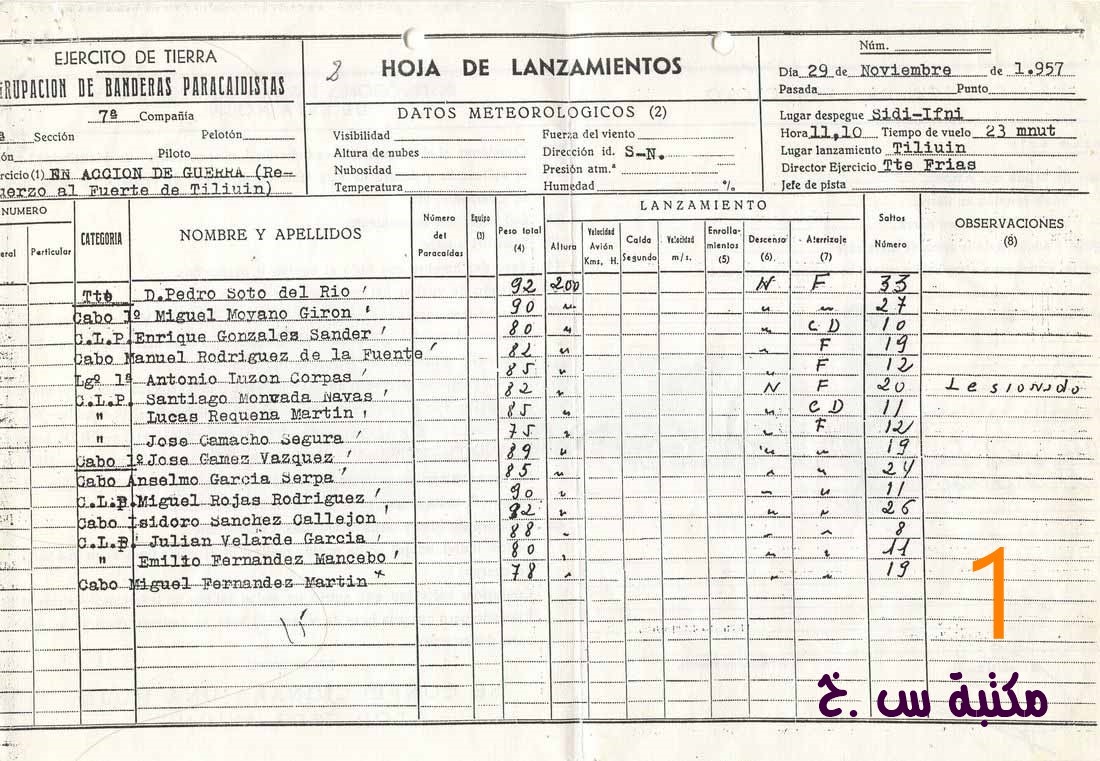 EJERCITO DE TIERRA
RUPACION DE BANDERAS PARACAIDISTAS
7ª Compañía
ª Sección Pelotón
ón Piloto
rcicio (1) EN ACCION DE GUERRA (Re-
uerzo al Fuerte de Tiliuin)
2 HOJA DE LANZAMIENTOS
DATOS METEOROLOGICOS (2)
Visibilidad Fuerza del viento
Altura de nubes Dirección id. S-N.
Nubosidad Presión atm.ª
Temperatura Humedad %
Núm.
Día 29 de Noviembre de 1.957
Pasada Punto
Lugar despegue Sidi-Ifni
Hora 11,10 Tiempo de vuelo 23 mnut
Lugar lanzamiento Tiliuin
Director Ejercicio Tte Frias
Jefe de pista
NUMERO
eral Particular
CATEGORIA
NOMBRE Y APELLIDOS
Número del Paracaídas
Equipo (3)
Peso total (4)
LANZAMIENTO
Altura
Velocidad Avión Kms. H.
Caída Segundo
Velocidad m/s.
Enrolla-mientos (5)
Descenso (6)
Aterrizaje (7)
Saltos Número
OBSERVACIONES (8)
Tte D.Pedro Soto del Rio 92 200 N F 33
Cabo 1º Miguel Moyano Giron 90 " " " 27
C.L.P. Enrique Gonzales Sander 80 " " C D 10
Cabo Manuel Rodriguez de la Fuente 82 " " F 19
Lgº 1ª Antonio Luzon Corpas 85 " " F 12
C.L.P. Santiago Monvada Navas 82 " N F 20 Lesionado
" Lucas Requena Martin 85 " " C D 11
" Jose Camacho Segura 75 " " F 12
Cabo 1º Jose Gamez Vazquez 89 " " " 19
Cabo Anselmo Garcia Serpa 85 " " " 24
C.L.P. Miguel Rojas Rodriguez 90 " " " 11
Cabo Isidoro Sanchez Callejon 82 " " " 26
C.L.P. Julian Velarde Garcia 88 8
" Emilio Fernandez Mancebo 80 " " " 11
Cabo Miguel Fernandez Martin 78 " " " 19
15
1
مكتبة س .خ